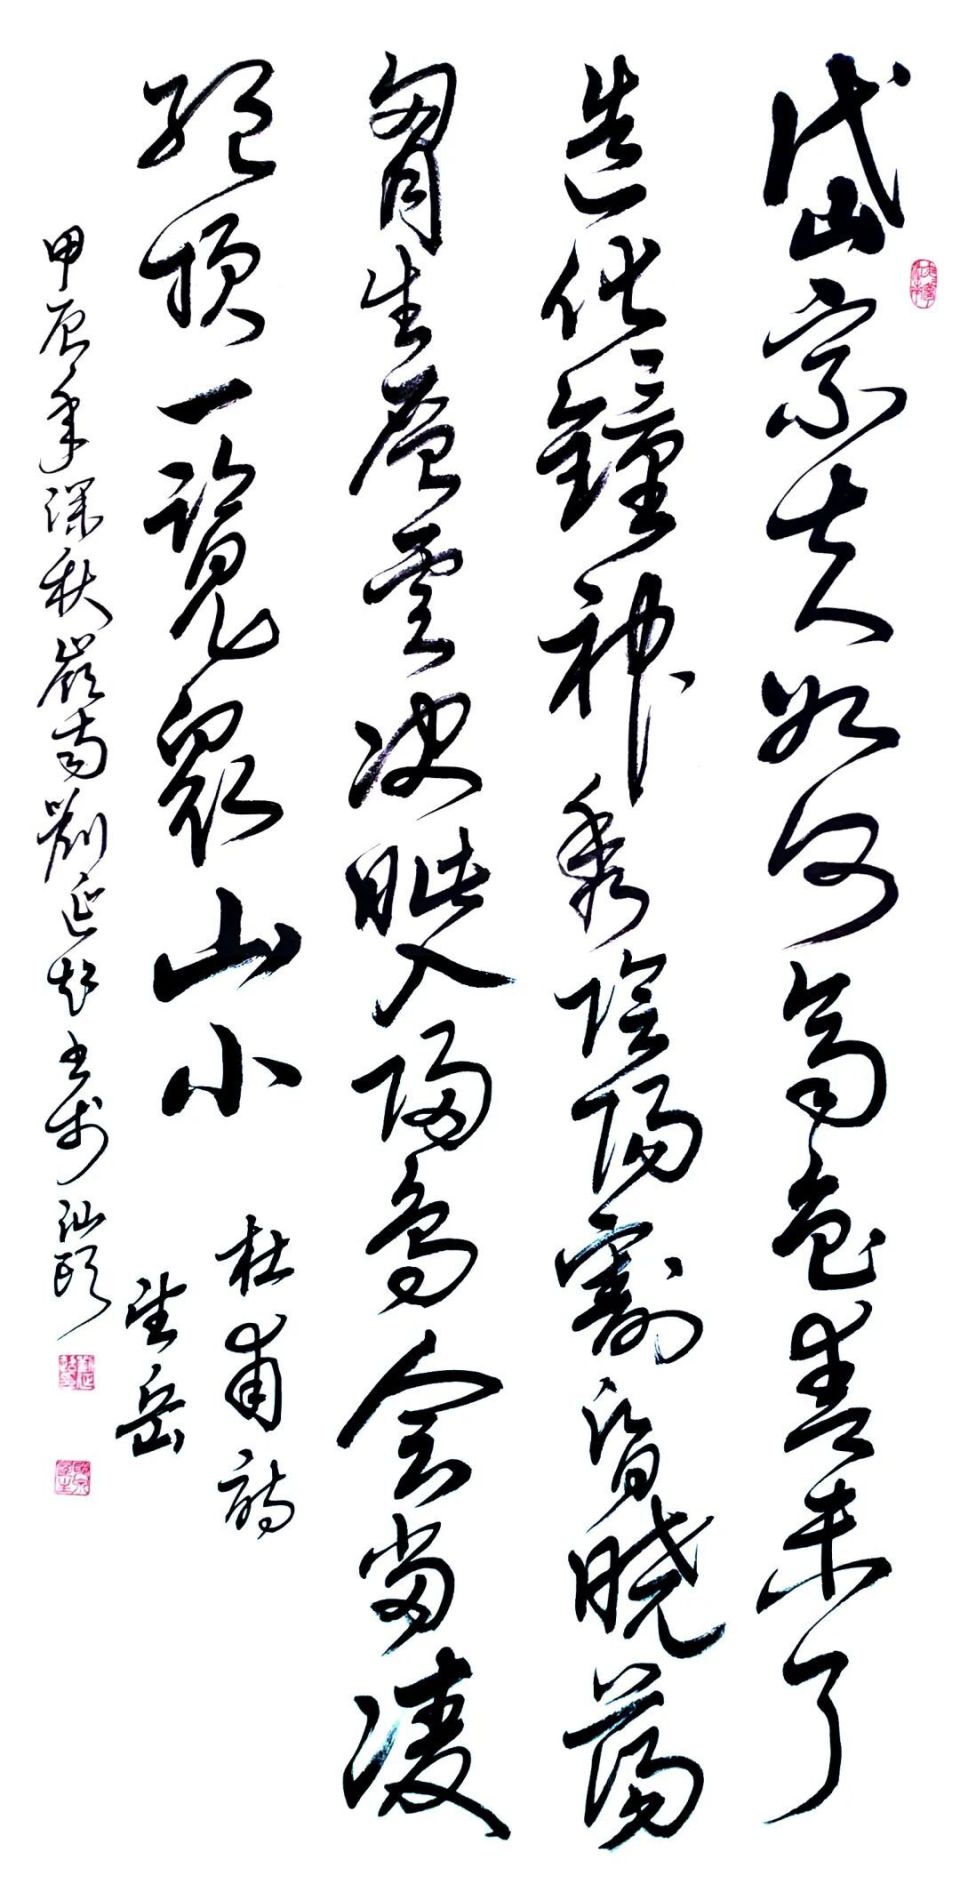 岱宗夫如何齊魯青未了
造化鐘神秀陰陽割昏曉蕩
胷生層雲决眦入歸鳥會當凌
絶頂一覽眾山小
杜甫詩
望岳
甲辰年深秋嶺南劉延書於汕頭